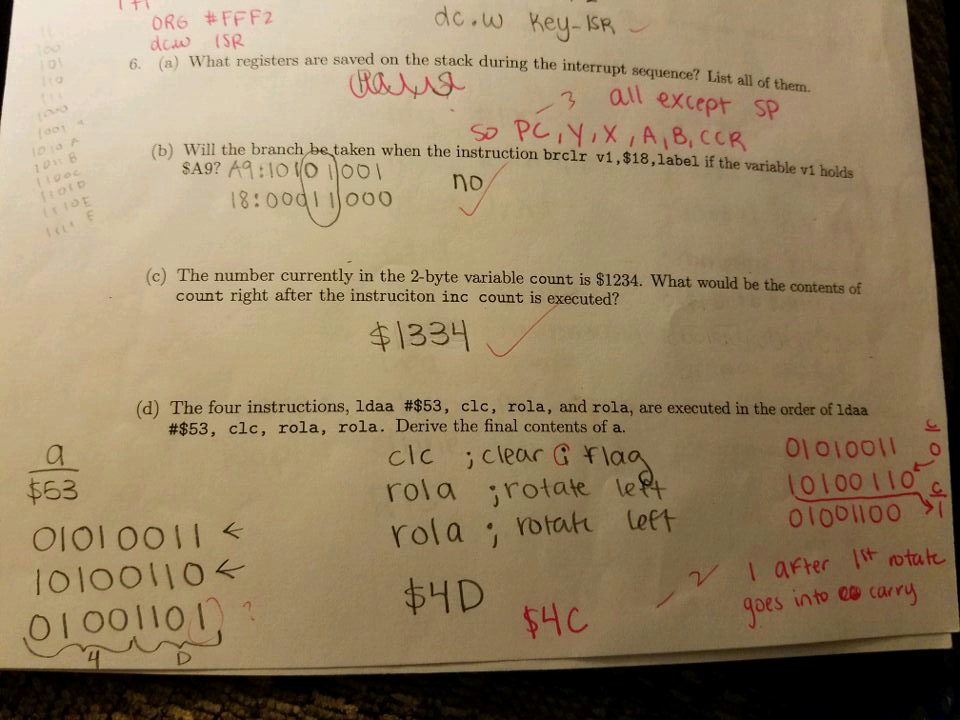 ORG #FFF2
dc.w ISR
dc.w Key-ISR
6. (a) What registers are saved on the stack during the interrupt sequence? List all of them.
-3 all except SP
so PC, Y, X, A, B, CCR
(b) Will the branch be taken when the instruction brclr v1,$18,label if the variable v1 holds
$A9? A9:10101001
18:00011000
no
(c) The number currently in the 2-byte variable count is $1234. What would be the contents of
count right after the instruciton inc count is executed?
$1334
(d) The four instructions, ldaa #$53, clc, rola, and rola, are executed in the order of ldaa
#$53, clc, rola, rola. Derive the final contents of a.
a
$53
01010011 ←
10100110 ←
01001101 ?
4 D
clc ; clear C flag
rola ; rotate left
rola ; rotate left
$4D
$4C
C
01010011 0
10100110 C
01001100 1
-2 1 after 1st rotate
goes into carry